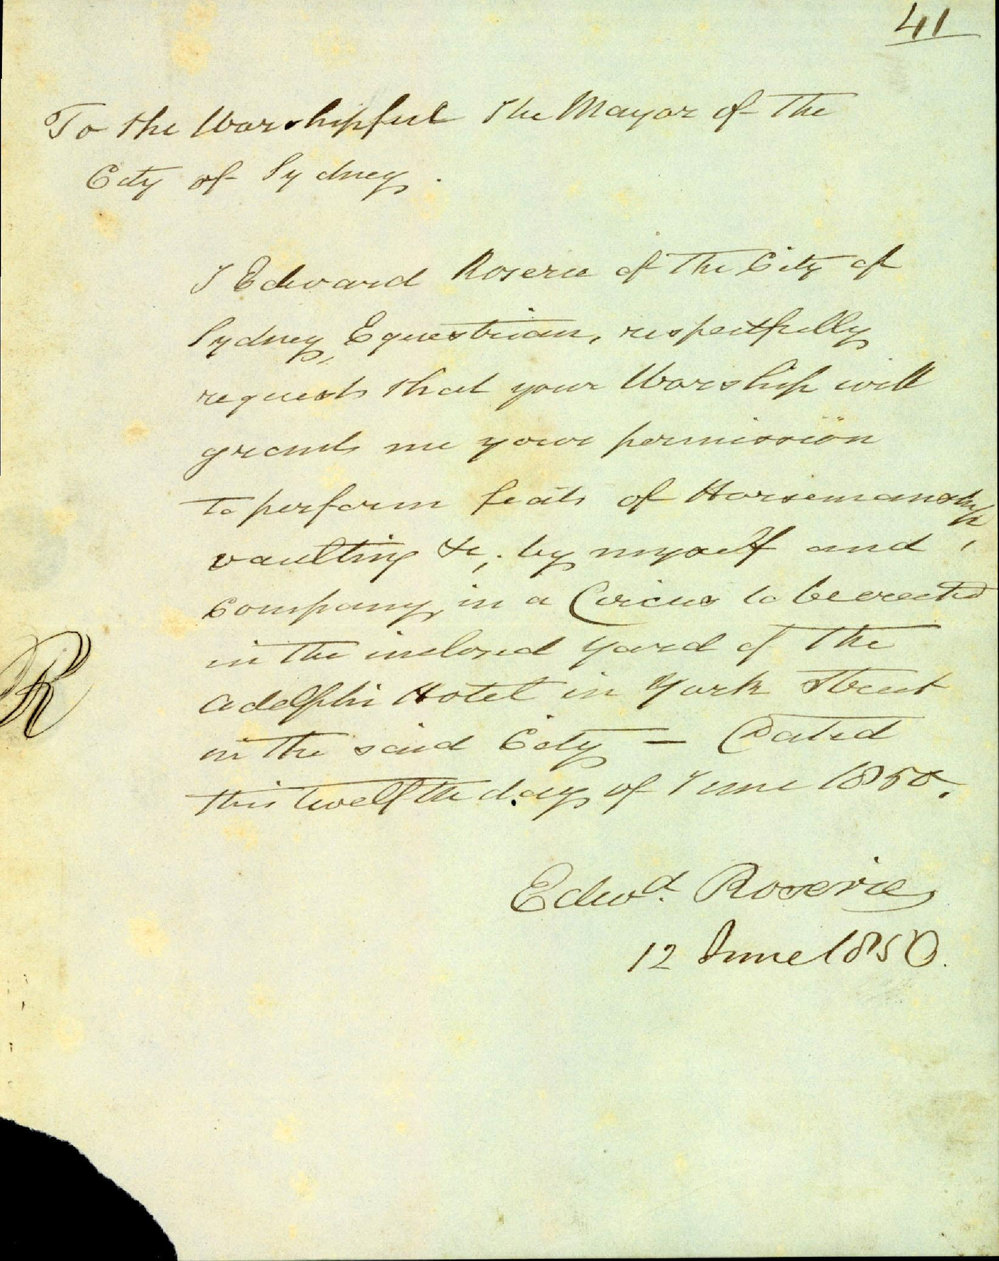 41
To the Worshipful the Mayor of the
City of Sydney.
I Edward Roserie of the City of
Sydney, Equestrian, respectfully
requests that your Worship will
grants me your permission
to perform feats of Horsemanship,
vaulting &c, by myself and
Company, in a Circus to be erected
in the inclosed yard of the
Adelphi Hotel in York Street
in the said City — Dated
this twelfth day of June 1850.
R
Edwd. Roserie
12 June 1850.